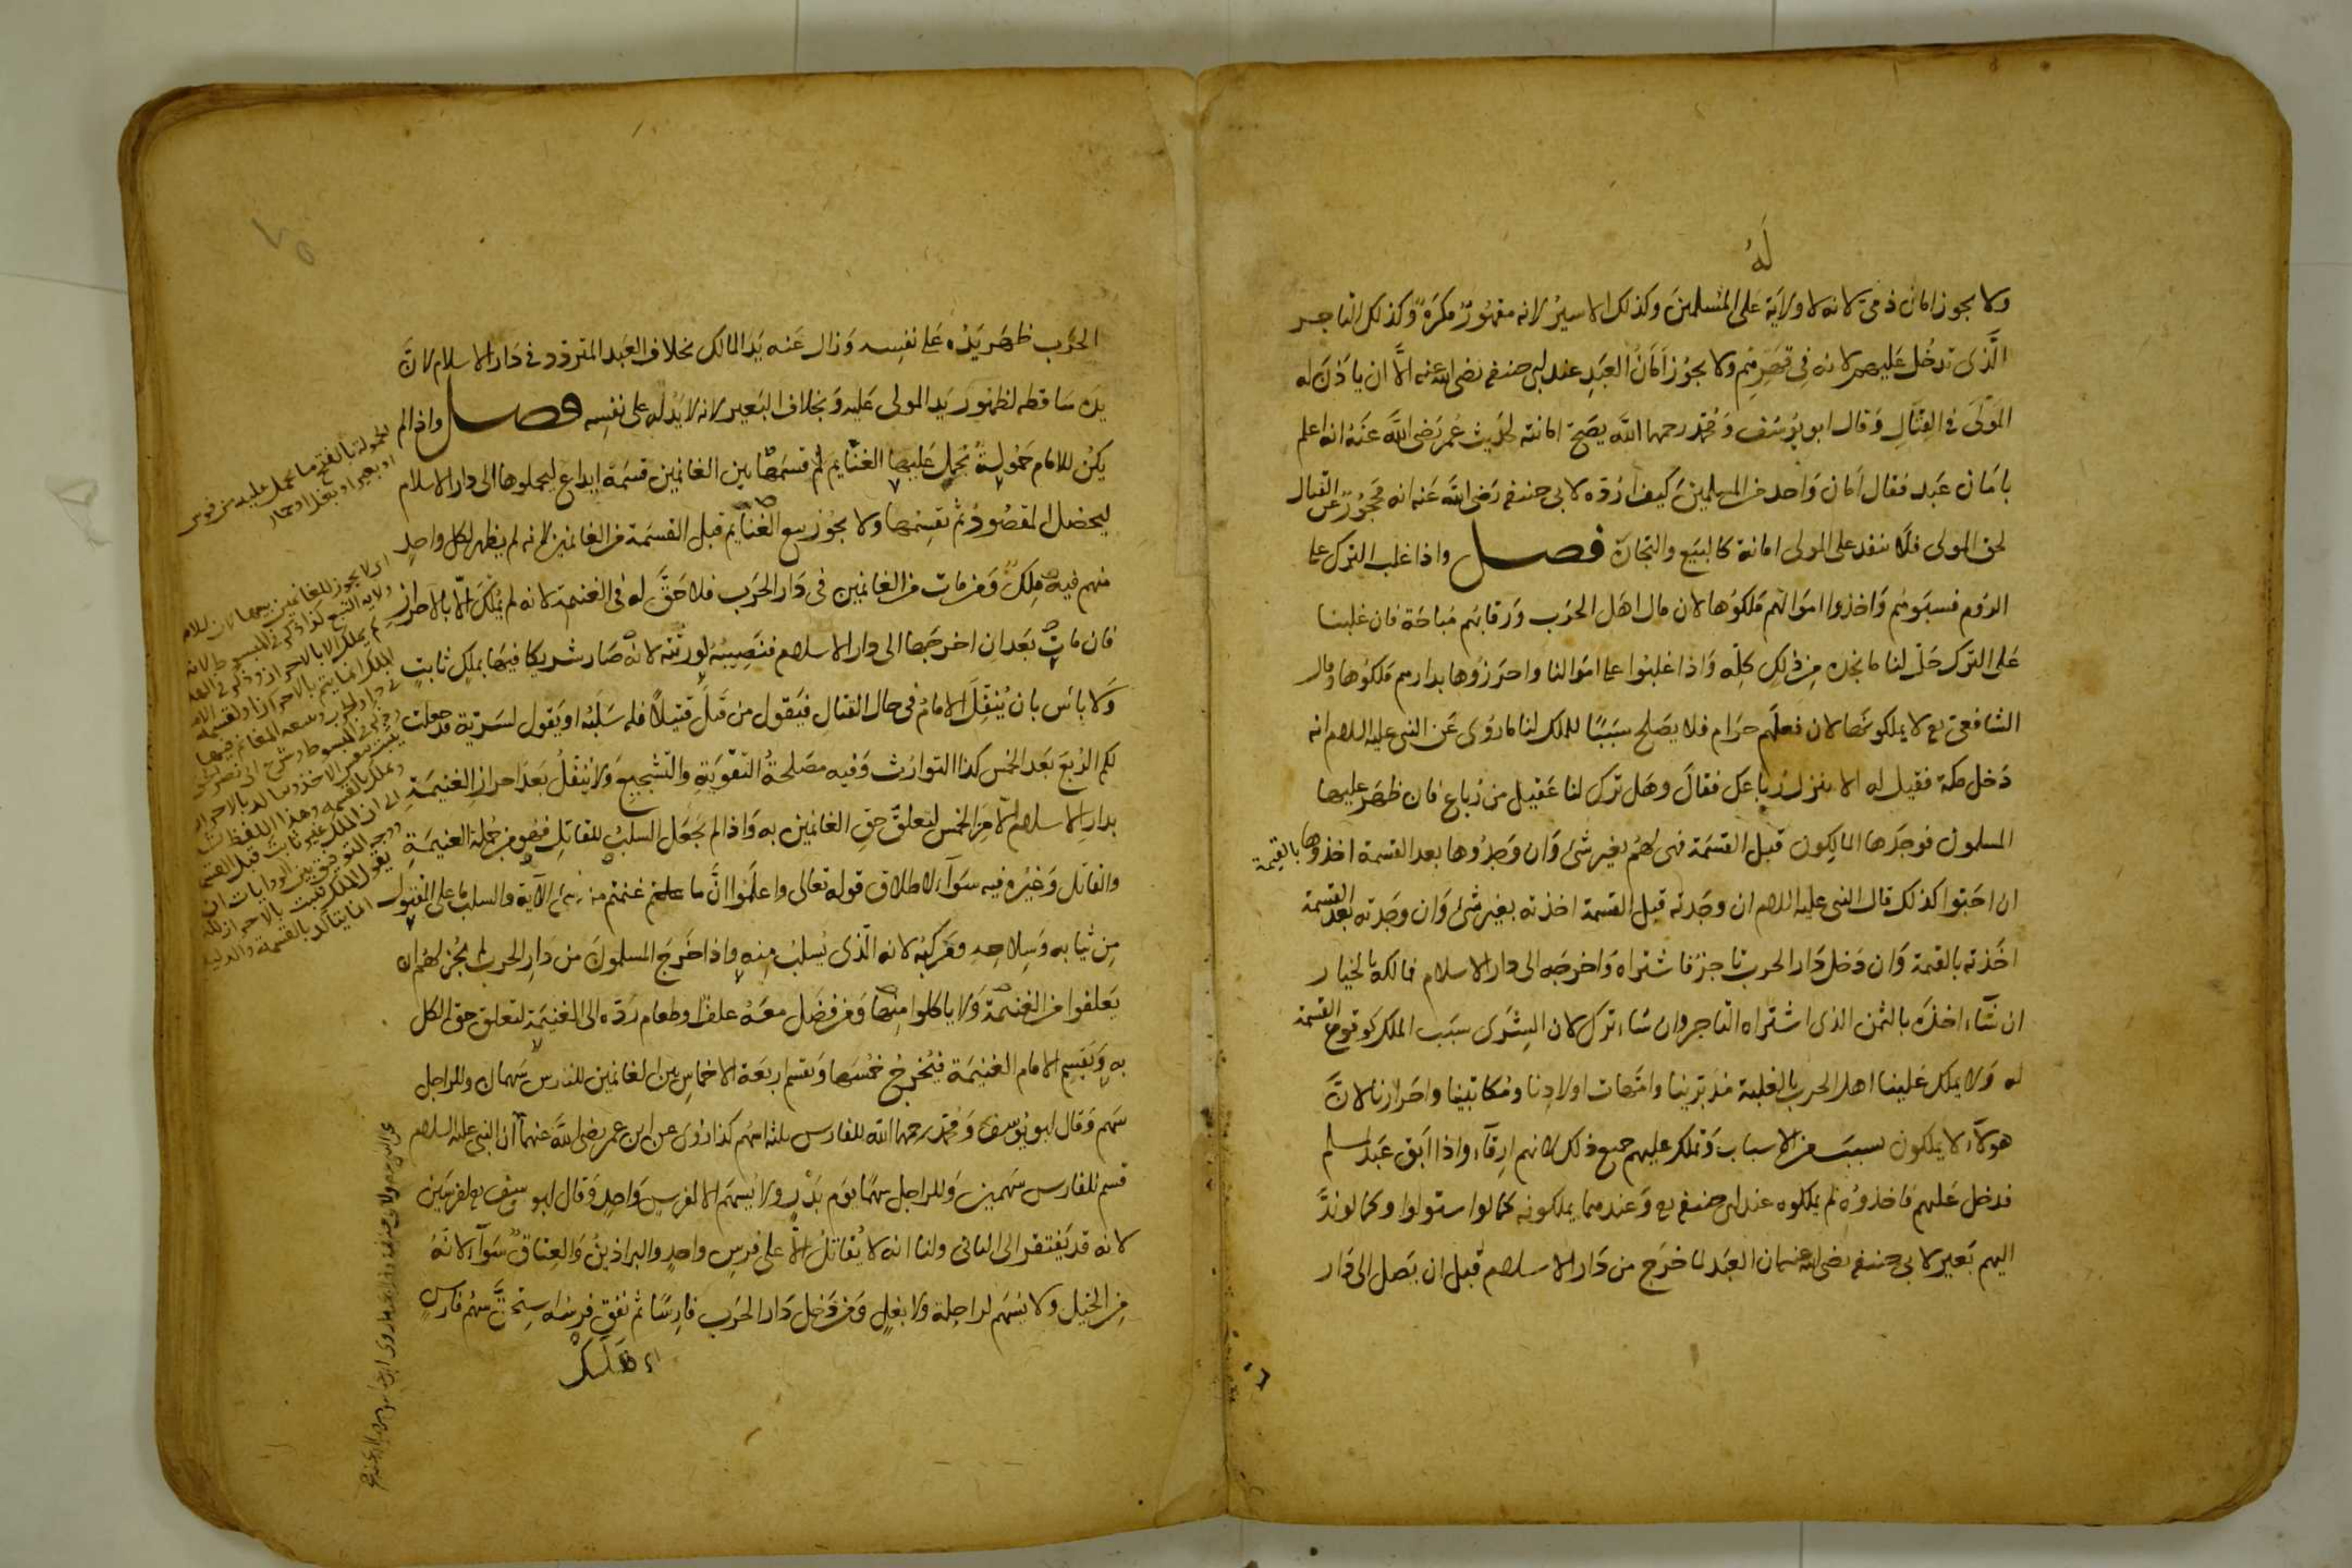 لَهُ
ولا يجوز امان ذمي لانه لا ولاية على المسلمين وكذلك الاسير لانه مقهور مكره وكذلك التاجر
الذى تدخل عليهم لانه فى قهرهم ولا يجوز امان العبد عند ابى حنيفة رضى الله عنه الا ان ياذن له
المولى فى القتال وقال ابو يوسف ومحمد رحمهما الله يصح امانته لحديث عمر رضى الله عنه انه اعلم
بامان عبد فقال امان واحد من المسلمين كيف ارده لابى حنيفة رضى الله عنه انه محجور عن القتال
لحق المولى فلا ينفذ على المولى امانه كالبيع والتجارة فصل واذا غلب الترك على
الروم فسبوهم واخذوا اموالهم ملكوها لان مال اهل الحرب ورقابهم مباحة فان غلبنا
على الترك حل لنا ما نجده من ذلك كله واذا غلبوا على اموالنا واحرزوها بدارهم ملكوها وقال
الشافعى رح لا يملكونها لان فعلهم حرام فلا يصلح سببا للملك لنا ما روى عن النبى عليه السلام انه
دخل مكة فقيل له الا ننزل رباعك فقال وهل ترك لنا عقيل من رباع فان ظهر عليها
المسلمون فوجدها المالكون قبل القسمة فهى لهم بغير شئ وان وجدوها بعد القسمة اخذوها بالقيمة
ان احبوا كذلك قال النبى عليه السلام ان وجدته قبل القسمة اخذته بغير شئ وان وجدته بعد القسمة
اخذته بالقيمة وان دخل دار الحرب تاجر فاشتراه واخرجه الى دار الاسلام فمالكه بالخيار
ان شاء اخذه بالثمن الذى اشتراه التاجر وان شاء ترك لان الشرى سبب الملك كوقوع القسمة
له ولا يملك علينا اهل الحرب بالغلبة مدبرينا وامهات اولادنا ومكاتبينا واحرارنا لان
هولاء لا يملكون بسبب من الاسباب ونملك عليهم جميع ذلك لانهم ارقاء واذا ابق عبد لمسلم
فدخل عليهم فاخذوه لم يملكوه عند ابى حنيفة رح وعندهما يملكونه كما لو استولوا وكما لو ند
اليهم بعير لابى حنيفة رضى الله عنه ان العبد لما خرج من دار الاسلام قبل ان يصل الى دار
الحرب ظهر يده على نفسه وزال عنه يد المالك بخلاف العبد المتردد فى دار الاسلام لان
يده ساقطه لظهور يد المولى عليه وبخلاف البعير لانه لا يد له على نفسه فصل واذا لم
يكن للامام حمولة تحمل عليها الغنايم قسمها بين الغانمين قسمة ايداع ليحملوها الى دار الاسلام
ليحصل المقصود ثم تقسمها ولا يجوز بيع الغنايم قبل القسمة من الغانمين لانه لم يظهر لكل واحد
منهم فيه ملك ومن مات من الغانمين فى دار الحرب فلا حق له فى الغنيمة لانه لم يملك الا بالاحراز
فان مات بعد ان اخرجها الى دار الاسلام فنصيبه لورثته لانه صار شريكا فيها بملك ثابت
ولا باس بان ينفل الامام فى حال القتال فيقول من قتل قتيلا فله سلبه او يقول لسرية قد جعلت
لكم الربع بعد الخمس كذا التوارث وفيه مصلحة التقوية والتشجيع ولا ينفل بعد احراز الغنيمة
بدار الاسلام الا من الخمس لتعلق حق الغانمين به واذا لم يجعل السلب للقاتل فهو من جملة الغنيمة
والقاتل وغيره فيه سواء لاطلاق قوله تعالى واعلموا ان ما غنمتم من شئ الآية والسلب ما على المقتول
من ثيابه وسلاحه ومركبه لانه الذى يسلب منه واذا خرج المسلمون من دار الحرب لم يجز لهم ان
يعلفوا من الغنيمة ولا ياكلوا منها ومن فضل معه علف او طعام رده الى الغنيمة لتعلق حق الكل
به ويقسم الامام الغنيمة فيخرج خمسها ويقسم اربعة الاخماس بين الغانمين للفارس سهمان وللراجل
سهم وقال ابو يوسف ومحمد رحمهما الله للفارس ثلثه اسهم كذا روى عن ابن عمر رضى الله عنهما ان النبى عليه السلام
قسم للفارس سهمين وللراجل سهما يوم بدر ولا يسهم الا لفرس واحد وقال ابو يوسف رح لفرسين
لانه قد يفتقر الى الثانى ولنا انه لا يقاتل الا على فرس واحد والبراذين والعتاق سواء لانه
من الخيل ولا يسهم لراحلة ولا بغل ومن دخل دار الحرب فارسا ثم نفق فرسه استحق سهم فارس
اى هلك
الحمولة بالفتح ما يحمل عليه من فرس
او بعير او بغل او حمار